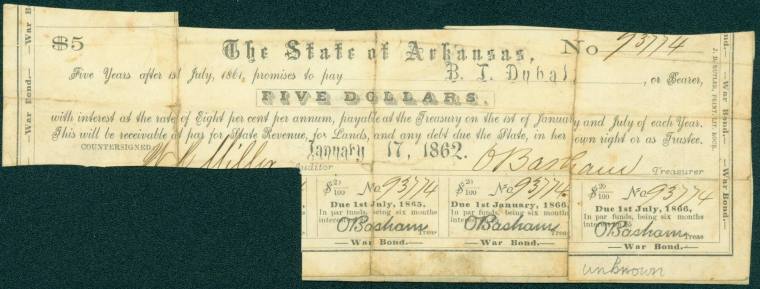 $5 The State of Arkansas, No 93774
Five Years after 1st July, 1861, promises to pay B. T. Duval, or Bearer,
FIVE DOLLARS,
with interest at the rate of Eight per cent per annum, payable at the Treasury on the 1st of January and July of each Year.
This will be receivable at par for State Revenue, for Lands, and any debt due the State, in her own right or as Trustee.
COUNTERSIGNED January 17, 1862.
W R Miller Auditor O Basham Treasurer
War Bond. — War Bond.
War Bond. — War Bond.
$20/100 No 93774
Due 1st July, 1865,
In par funds, being six months
interest
O Basham Treas
— War Bond. —
$20/100 No 93774
Due 1st January, 1866
In par funds, being six months
interest
O Basham Treas
— War Bond. —
$20/100 No 93774
Due 1st July, 1866,
In par funds, being six months
interest
O Basham Treas
— War Bond. —
unknown